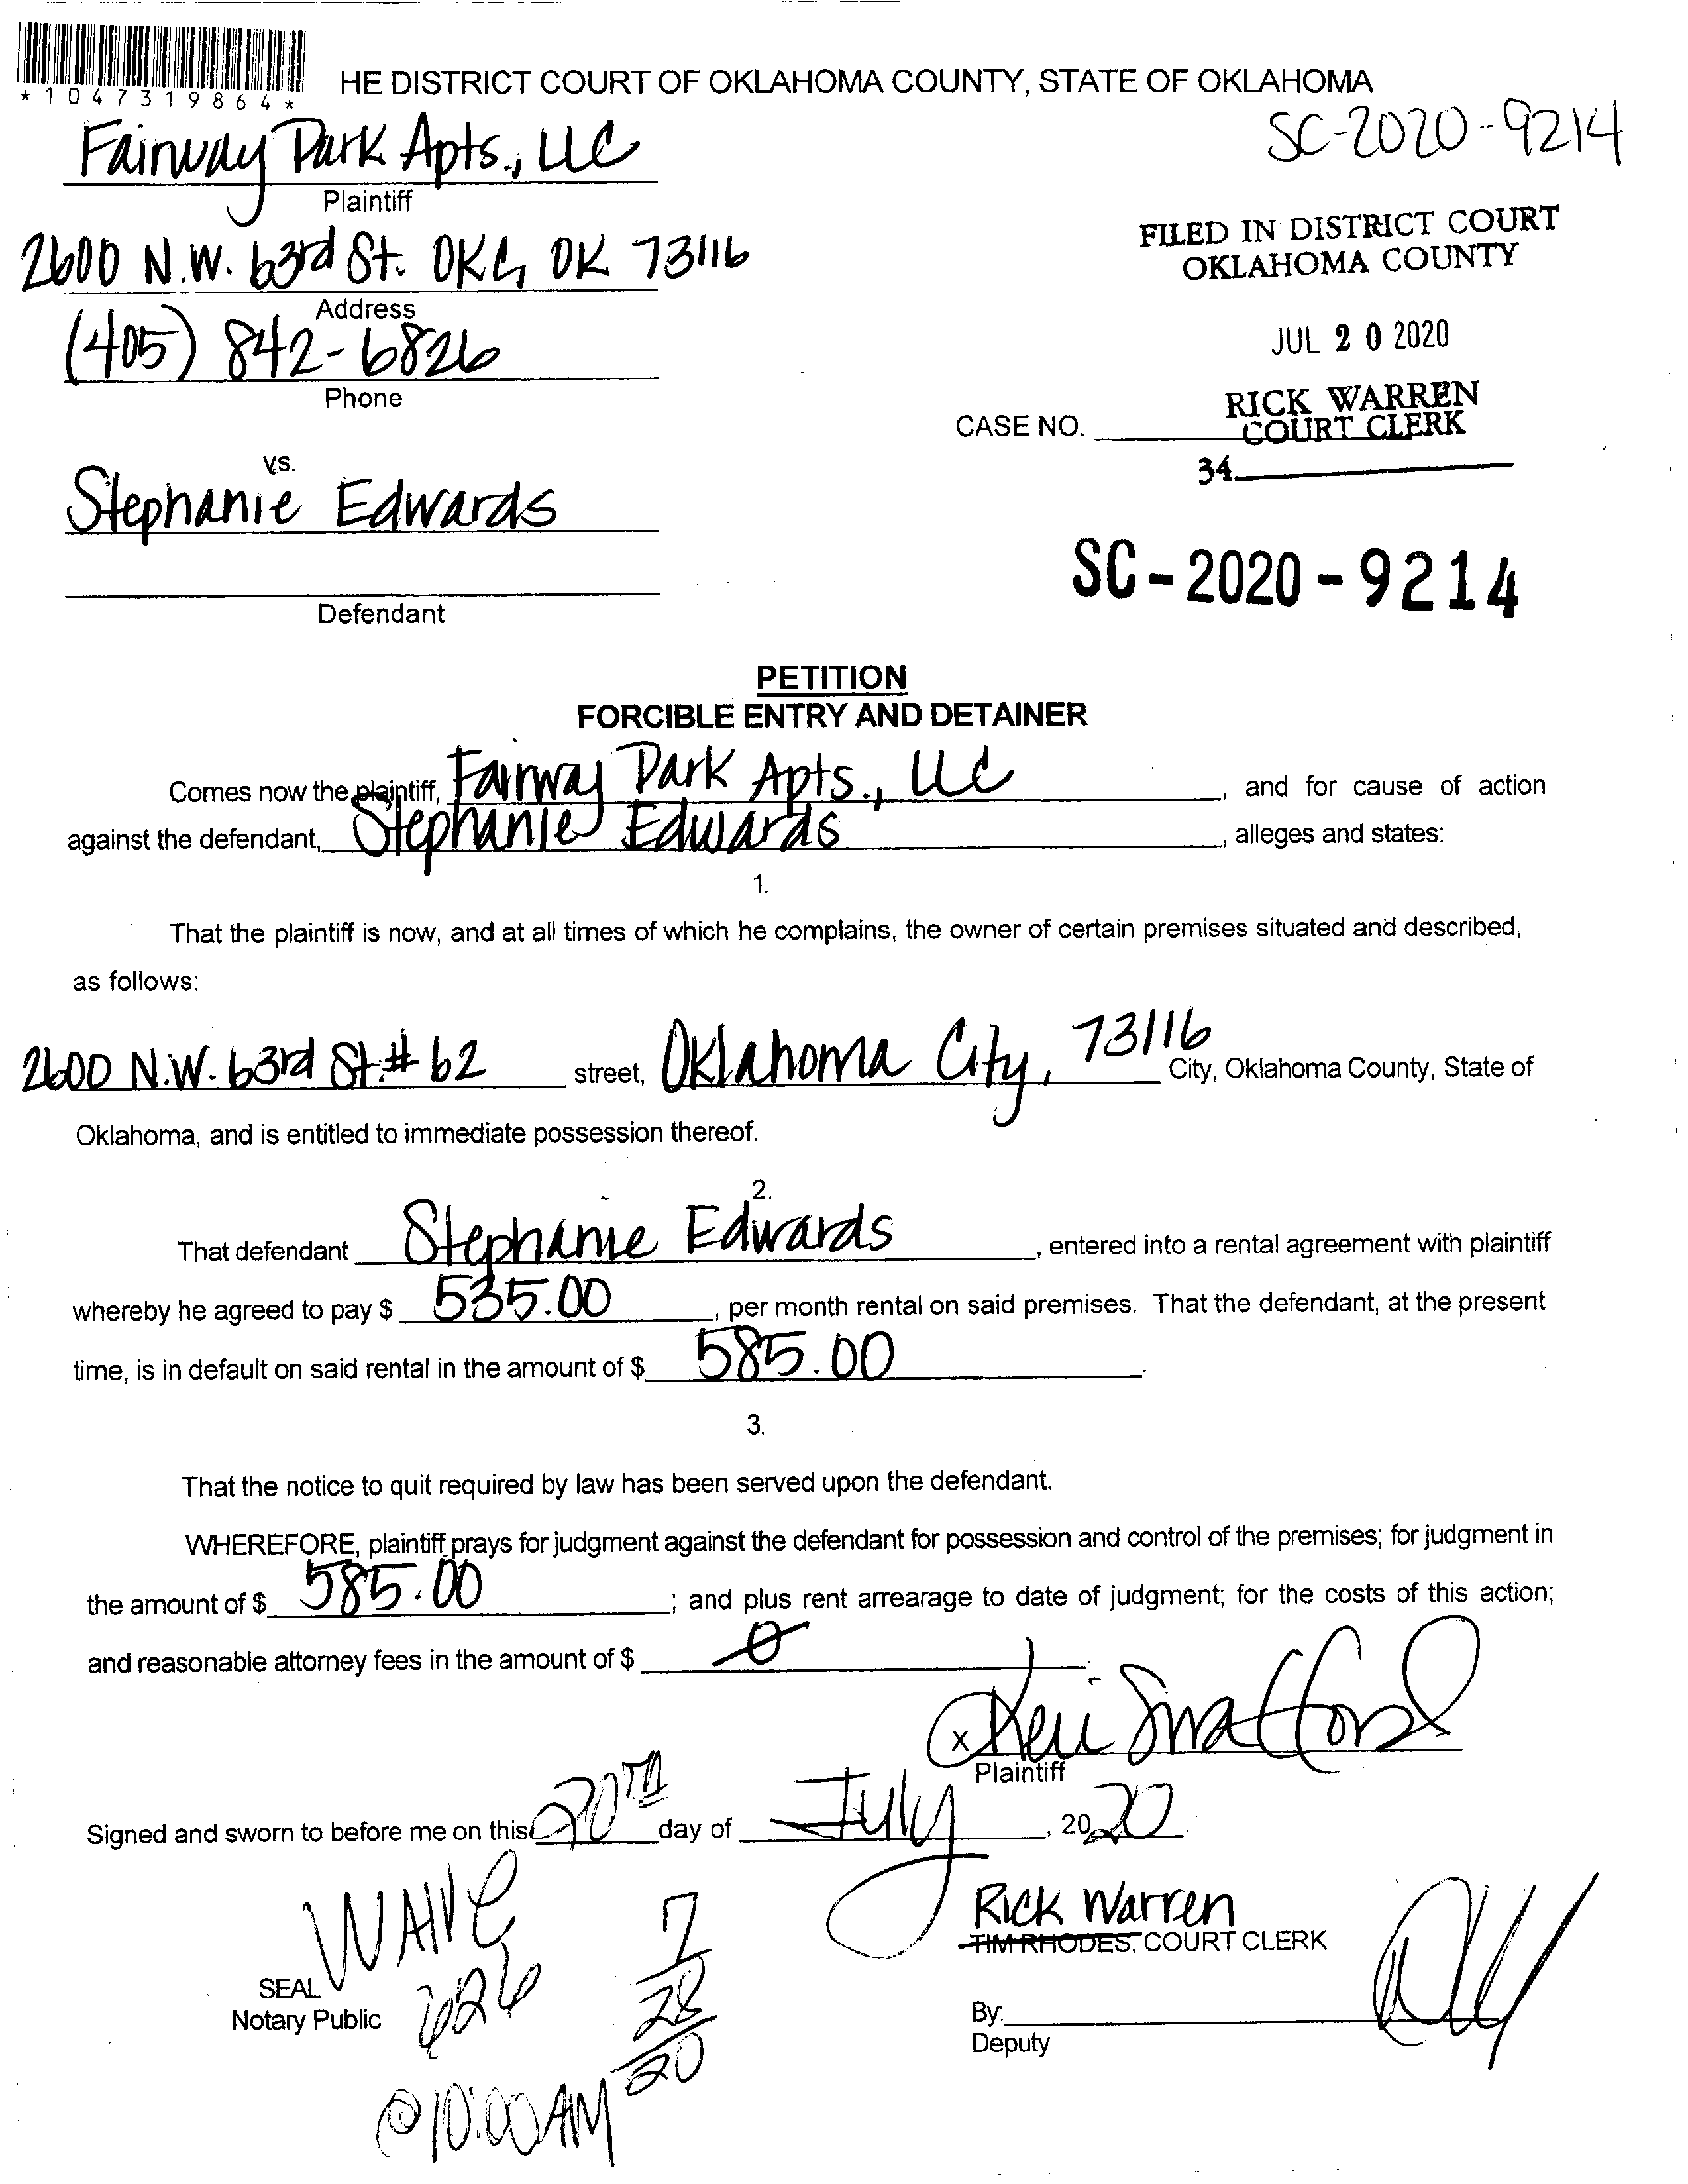 *1047319864*
HE DISTRICT COURT OF OKLAHOMA COUNTY, STATE OF OKLAHOMA
SC-2020-9214
Fairway Park Apts., LLC
Plaintiff
2600 N.W. 63rd St. OKC, OK 73116
Address
(405) 842-6826
Phone
FILED IN DISTRICT COURT
OKLAHOMA COUNTY
JUL 20 2020
RICK WARREN
COURT CLERK
CASE NO.
34
vs.
Stephanie Edwards
Defendant
SC-2020-9214
PETITION
FORCIBLE ENTRY AND DETAINER
Comes now the plaintiff, Fairway Park Apts., LLC, and for cause of action
against the defendant, Stephanie Edwards, alleges and states:
1.
That the plaintiff is now, and at all times of which he complains, the owner of certain premises situated and described,
as follows:
2600 N.W. 63rd St. # 62 street, Oklahoma City, 73116 City, Oklahoma County, State of
Oklahoma, and is entitled to immediate possession thereof.
2.
That defendant Stephanie Edwards, entered into a rental agreement with plaintiff
whereby he agreed to pay $ 535.00, per month rental on said premises. That the defendant, at the present
time, is in default on said rental in the amount of $ 585.00.
3.
That the notice to quit required by law has been served upon the defendant.
WHEREFORE, plaintiff prays for judgment against the defendant for possession and control of the premises; for judgment in
the amount of $ 585.00; and plus rent arrearage to date of judgment; for the costs of this action;
and reasonable attorney fees in the amount of $ 0
x Keri Swafford
Plaintiff
Signed and sworn to before me on this 20TH day of July, 2020.
Rick Warren
TIM RHODES, COURT CLERK
WAIVE
SEAL
Notary Public
626
7
28
20
By:
Deputy
@ 10:00 AM